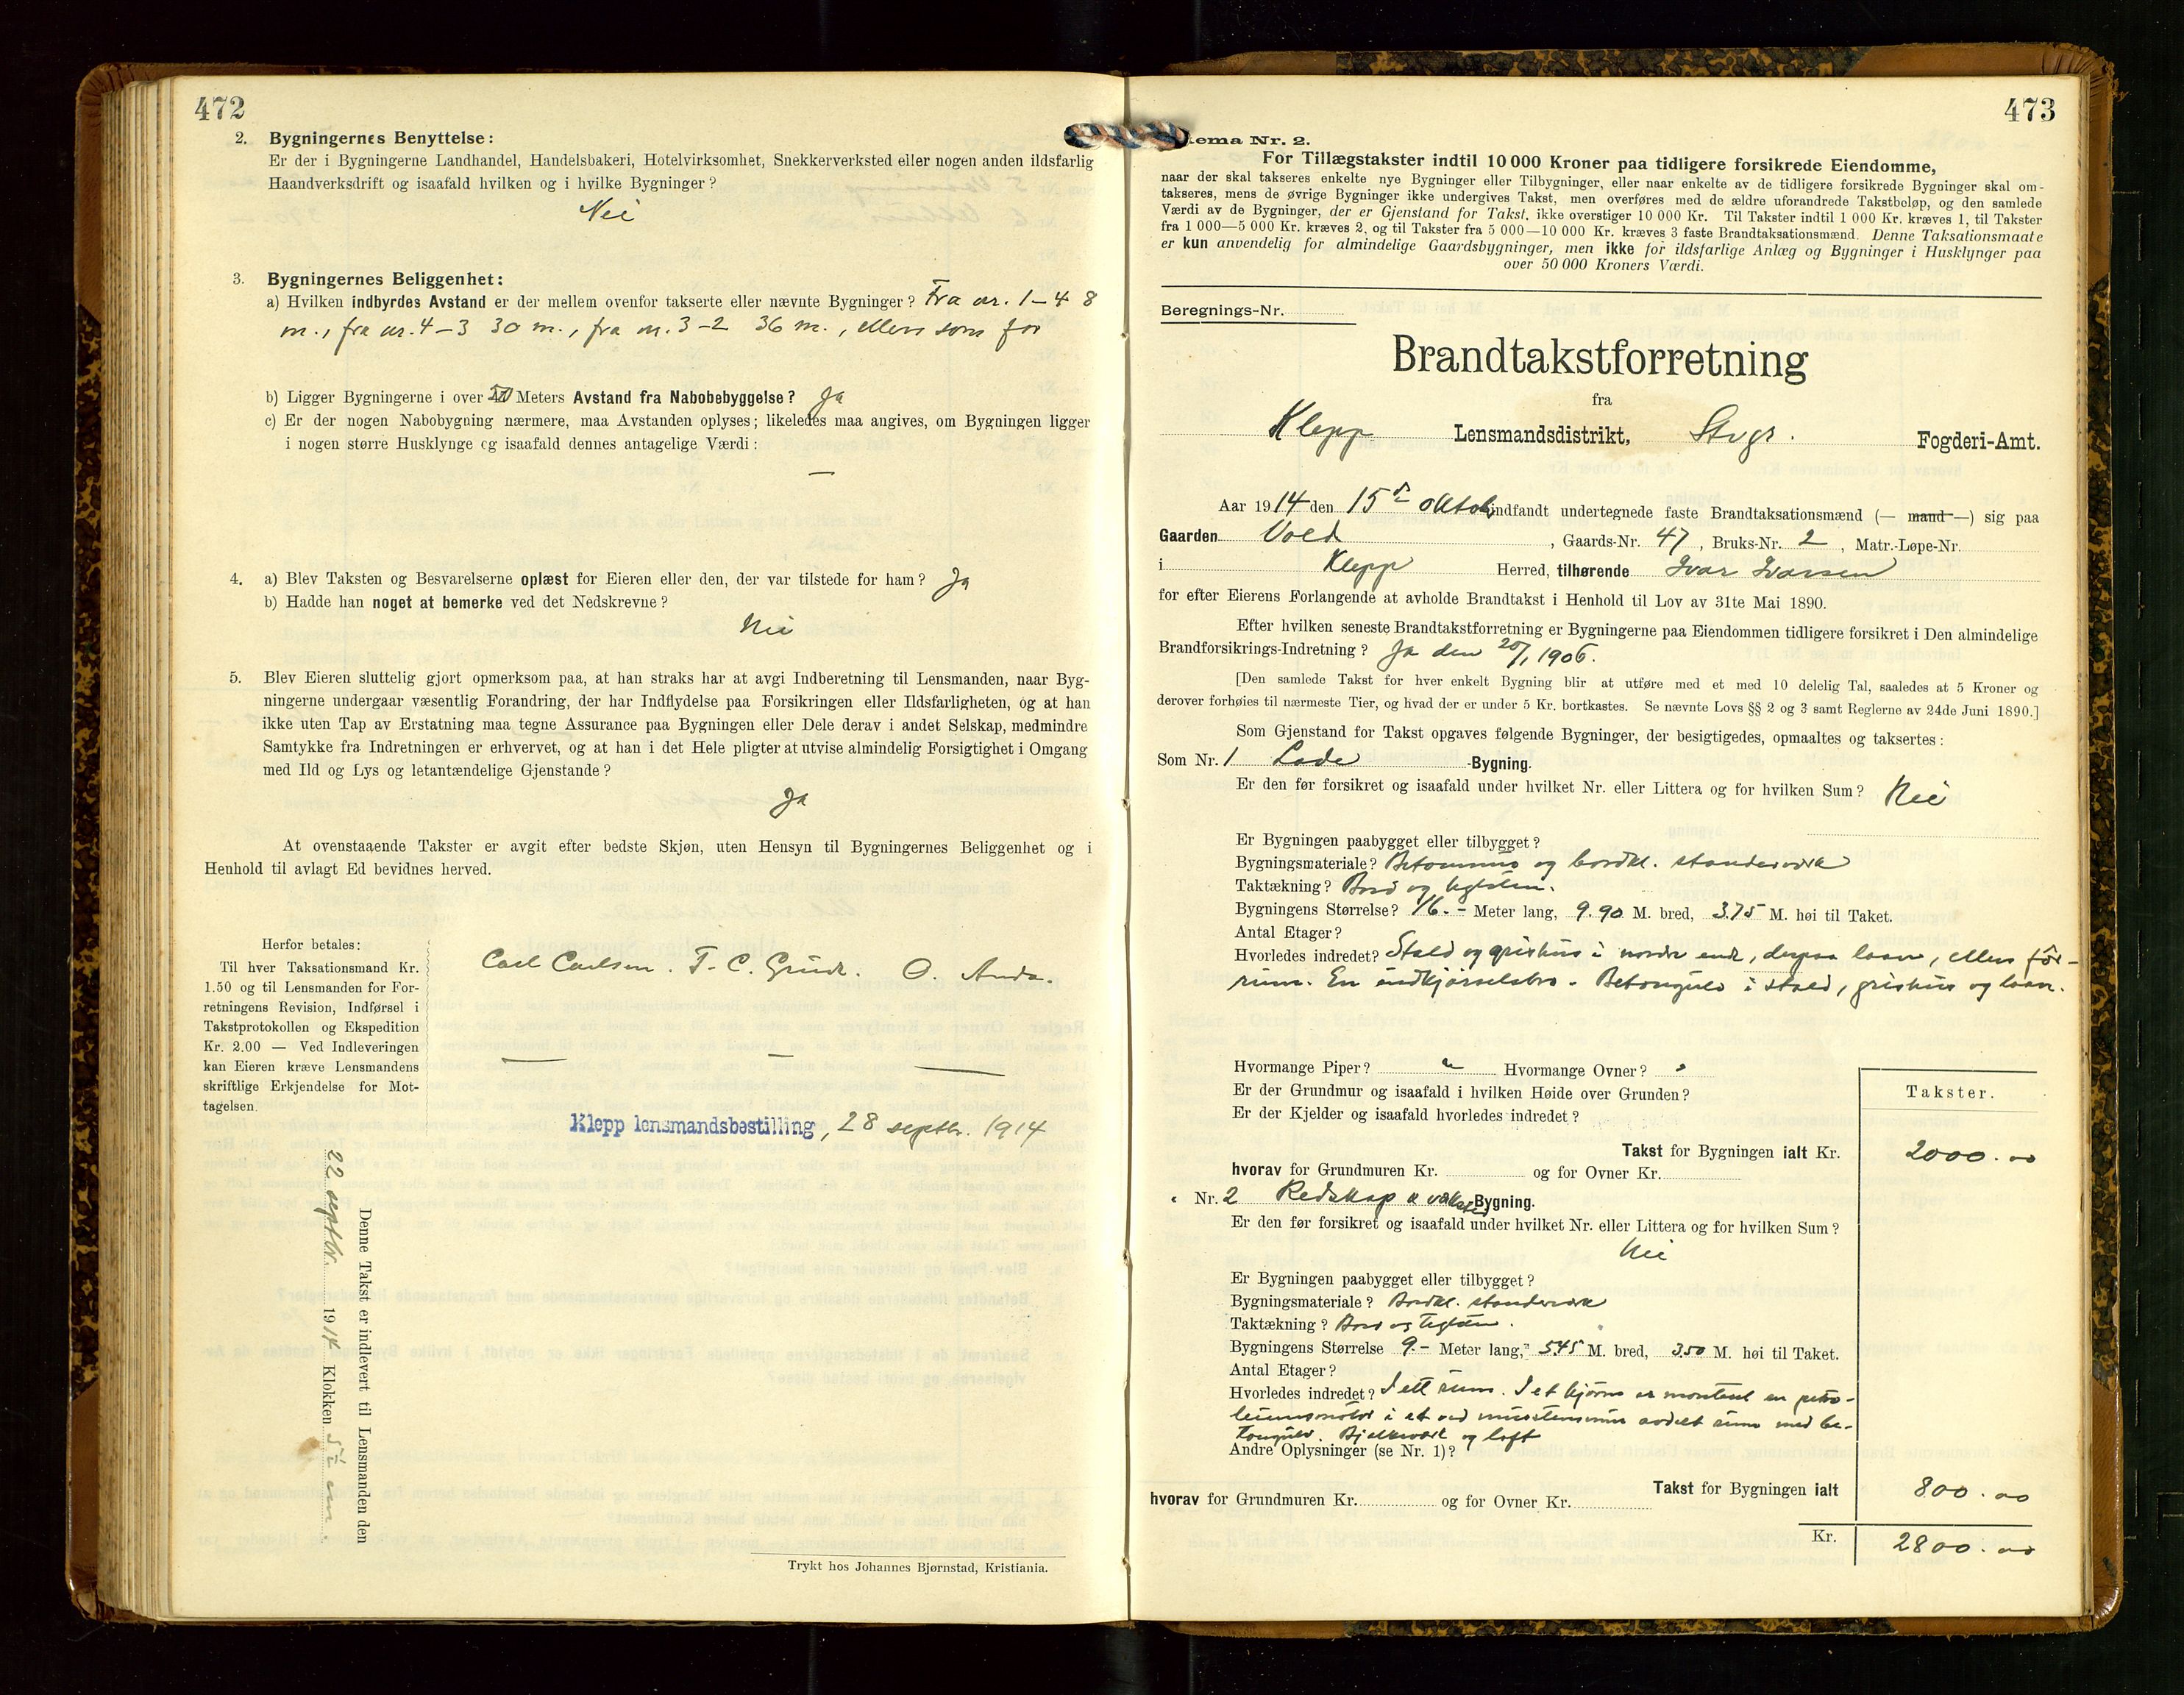 472
2. Bygningernes Benyttelse:
Er der i Bygningerne Landhandel, Handelsbakeri, Hotelvirksomhet, Snekkerverksted eller nogen anden ildsfarlig
Haandverksdrift og isaafald hvilken og i hvilke Bygninger?
Nei
3. Bygningernes Beliggenhet:
a) Hvilken indbyrdes Avstand er der mellem ovenfor takserte eller nævnte Bygninger? Fra nr. 1-4 8
m., fra nr. 4-3 30 m., fra nr. 3-2 36 m., ellers som før
b) Ligger Bygningerne i over 50 Meters Avstand fra Nabobebyggelse? Ja
c) Er der nogen Nabobygning nærmere, maa Avstanden oplyses; likeledes maa angives, om Bygningen ligger
i nogen større Husklynge og isaafald dennes antagelige Værdi:
—
4. a) Blev Taksten og Besvarelserne oplæst for Eieren eller den, der var tilstede for ham? Ja
b) Hadde han noget at bemerke ved det Nedskrevne?
Nei
5. Blev Eieren sluttelig gjort opmerksom paa, at han straks har at avgi Indberetning til Lensmanden, naar Byg-
ningerne undergaar væsentlig Forandring, der har Indflydelse paa Forsikringen eller Ildsfarligheten, og at han
ikke uten Tap av Erstatning maa tegne Assurance paa Bygningen eller Dele derav i andet Selskap, medmindre
Samtykke fra Indretningen er erhvervet, og at han i det Hele pligter at utvise almindelig Forsigtighet i Omgang
med Ild og Lys og letantændelige Gjenstande?
Ja
At ovenstaaende Takster er avgit efter bedste Skjøn, uten Hensyn til Bygningernes Beliggenhet og i
Henhold til avlagt Ed bevidnes herved.
Herfor betales:
Til hver Taksationsmand Kr.
1.50 og til Lensmanden for For-
retningens Revision, Indførsel i
Takstprotokollen og Ekspedition
Kr. 2.00 — Ved Indleveringen
kan Eieren kræve Lensmandens
skriftlige Erkjendelse for Mot-
tagelsen.
Carl Carlsen. T. C. Grude. O. Anda.
Klepp lensmandsbestilling, 28 septbr. 1914
Denne Takst er indlevert til Lensmanden den
22 septbr. 1914 Klokken 5
Trykt hos Johannes Bjørnstad, Kristiania.
473
ema Nr. 2.
For Tillægstakster indtil 10 000 Kroner paa tidligere forsikrede Eiendomme,
naar der skal takseres enkelte nye Bygninger eller Tilbygninger, eller naar enkelte av de tidligere forsikrede Bygninger skal om-
takseres, mens de øvrige Bygninger ikke undergives Takst, men overføres med de ældre uforandrede Takstbeløp, og den samlede
Værdi av de Bygninger, der er Gjenstand for Takst, ikke overstiger 10 000 Kr. Til Takster indtil 1 000 Kr. kræves 1, til Takster
fra 1 000—5 000 Kr. kræves 2, og til Takster fra 5 000—10 000 Kr. kræves 3 faste Brandtaksationsmænd. Denne Taksationsmaate
er kun anvendelig for almindelige Gaardsbygninger, men ikke for ildsfarlige Anlæg og Bygninger i Husklynger paa
over 50 000 Kroners Værdi.
Beregnings-Nr.
Brandtakstforretning
fra
Klepp Lensmandsdistrikt, Stvgr. Fogderi-Amt.
Aar 1914 den 15de oktob. indfandt undertegnede faste Brandtaksationsmænd (— mand —) sig paa
Gaarden Vold, Gaards-Nr. 47, Bruks-Nr. 2, Matr.-Løpe-Nr.
i Klepp Herred, tilhørende Ivar Ivarsen
for efter Eierens Forlangende at avholde Brandtakst i Henhold til Lov av 31te Mai 1890.
Efter hvilken seneste Brandtakstforretning er Bygningerne paa Eiendommen tidligere forsikret i Den almindelige
Brandforsikrings-Indretning? Ja den 20/1 1906.
[Den samlede Takst for hver enkelt Bygning blir at utføre med et med 10 delelig Tal, saaledes at 5 Kroner og
derover forhøies til nærmeste Tier, og hvad der er under 5 Kr. bortkastes. Se nævnte Lovs §§ 2 og 3 samt Reglerne av 24de Juni 1890.]
Som Gjenstand for Takst opgaves følgende Bygninger, der besigtigedes, opmaaltes og taksertes:
Som Nr. 1 Lade -Bygning.
Er den før forsikret og isaafald under hvilket Nr. eller Littera og for hvilken Sum? Nei
Er Bygningen paabygget eller tilbygget?
Bygningsmateriale? Betonmur og bordkl. standerverk
Taktækning? Bord og teglsten.
Bygningens Størrelse? 16.- Meter lang, 9.90 M. bred, 3.75 M. høi til Taket.
Antal Etager?
Hvorledes indredet? Stald og grishus i nordre ende, derpaa laave, ellers før-
rum. En indkjørselsbro. Betongulv i stald, grishus og laave.
Hvormange Piper? Hvormange Ovner?
Er der Grundmur og isaafald i hvilken Høide over Grunden?
Er der Kjelder og isaafald hvorledes indredet?
Takster.
Takst for Bygningen ialt Kr. 2000.00
hvorav for Grundmuren Kr. og for Ovner Kr.
Nr. 2 Redskap -Bygning.
Er den før forsikret og isaafald under hvilket Nr. eller Littera og for hvilken Sum?
Nei
Er Bygningen paabygget eller tilbygget?
Bygningsmateriale? Bordkl. standerverk
Taktækning? Bord og teglsten.
Bygningens Størrelse 9.- Meter lang, 5.45 M. bred, 3.50 M. høi til Taket.
Antal Etager?
Hvorledes indredet? I ett rum. I et hjørne er montert en petro-
leumsmotor i et ved murstensmur avdelt rum med be-
tongulv. Bjelkeverk og loft
Andre Oplysninger (se Nr. 1)?
Takst for Bygningen ialt 800.00
hvorav for Grundmuren Kr. og for Ovner Kr.
Kr. 2800.00